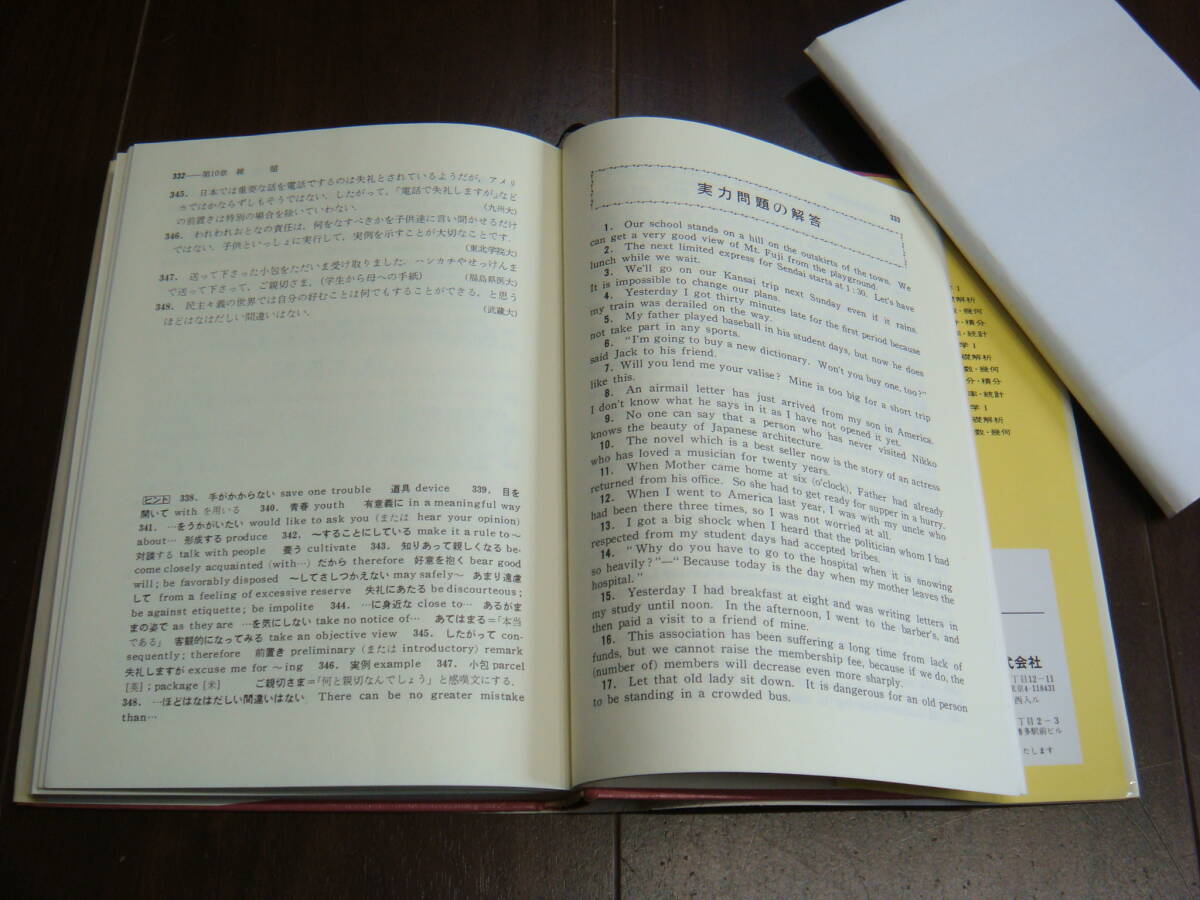 332——第10章 練
345. 日本では重要な話を電話でするのは失礼とされているようだが, アメリ
カではかならずしもそうではない. したがって,「電話で失礼しますが」など
の前置きは特別の場合を除いていわない. (九州大)
346. われわれおとなの責任は, 何をなすべきかを子供達に言い聞かせるだけ
ではない. 子供といっしょに実行して, 実例を示すことが大切なことです.
(東北学院大)
347. 送って下さった小包をただいま受け取りました. ハンカチやせっけんま
で送って下さって, ご親切さま. (学生から母への手紙) (福島県医大)
348. 民主々義の世界では自分の好むことは何でもすることができる, と思う
ほどはなはだしい間違いはない. (武蔵大)
ヒント 338. 手がかからない save one trouble 道具 device 339. 目を
開いて with を用いる 340. 青春 youth 有意義に in a meaningful way
341. …をうかがいたい would like to ask you (または hear your opinion)
about… 形成する produce 342. 〜することにしている make it a rule to〜
対談する talk with people 養う cultivate 343. 知りあって親しくなる be-
come closely acquainted (with…) だから therefore 好意を抱く bear good
will; be favorably disposed 〜してさしつかえない may safely〜 あまり遠慮
して from a feeling of excessive reserve 失礼にあたる be discourteous;
be against etiquette; be impolite 344. …に身近な close to… あるがま
まの姿で as they are …を気にしない take no notice of… あてはまる=「本当
である」 客観的になってみる take an objective view 345. したがって con-
sequently; therefore 前置き preliminary (または introductory) remark
失礼しますが excuse me for 〜ing 346. 実例 example 347. 小包 parcel
[英]; package [米] ご親切さま=「何と親切なんでしょう」と感嘆文にする.
348. …ほどはなはだしい間違いはない There can be no greater mistake
than…
333
実力問題の解答
1. Our school stands on a hill on the outskirts of the town. We
can get a very good view of Mt. Fuji from the playground.
2. The next limited express for Sendai starts at 1:30. Let's have
lunch while we wait.
3. We'll go on our Kansai trip next Sunday even if it rains.
It is impossible to change our plans.
4. Yesterday I got thirty minutes late for the first period because
my train was derailed on the way.
5. My father played baseball in his student days, but now he does
not take part in any sports.
6. "I'm going to buy a new dictionary. Won't you buy one, too?"
said Jack to his friend.
7. Will you lend me your valise? Mine is too big for a short trip
like this.
8. An airmail letter has just arrived from my son in America.
I don't know what he says in it as I have not opened it yet.
9. No one can say that a person who has never visited Nikko
knows the beauty of Japanese architecture.
10. The novel which is a best seller now is the story of an actress
who has loved a musician for twenty years.
11. When Mother came home at six (o'clock), Father had already
returned from his office. So she had to get ready for supper in a hurry.
12. When I went to America last year, I was with my uncle who
had been there three times, so I was not worried at all.
13. I got a big shock when I heard that the politician whom I had
respected from my student days had accepted bribes.
14. "Why do you have to go to the hospital when it is snowing
so heavily?"—"Because today is the day when my mother leaves the
hospital."
15. Yesterday I had breakfast at eight and was writing letters in
my study until noon. In the afternoon, I went to the barber's, and
then paid a visit to a friend of mine.
16. This association has been suffering a long time from lack of
funds, but we cannot raise the membership fee, because if we do, the
(number of) members will decrease even more sharply.
17. Let that old lady sit down. It is dangerous for an old person
to be standing in a crowded bus.
解析
数・幾何
分・積分
率・統計
学I
礎解析
数・幾何
分・積分
率・統計
学I
礎解析
数・幾何
式会社
丁目12-11
東京4-118431
西入ル
丁目2-3
博多駅前ビル
たします